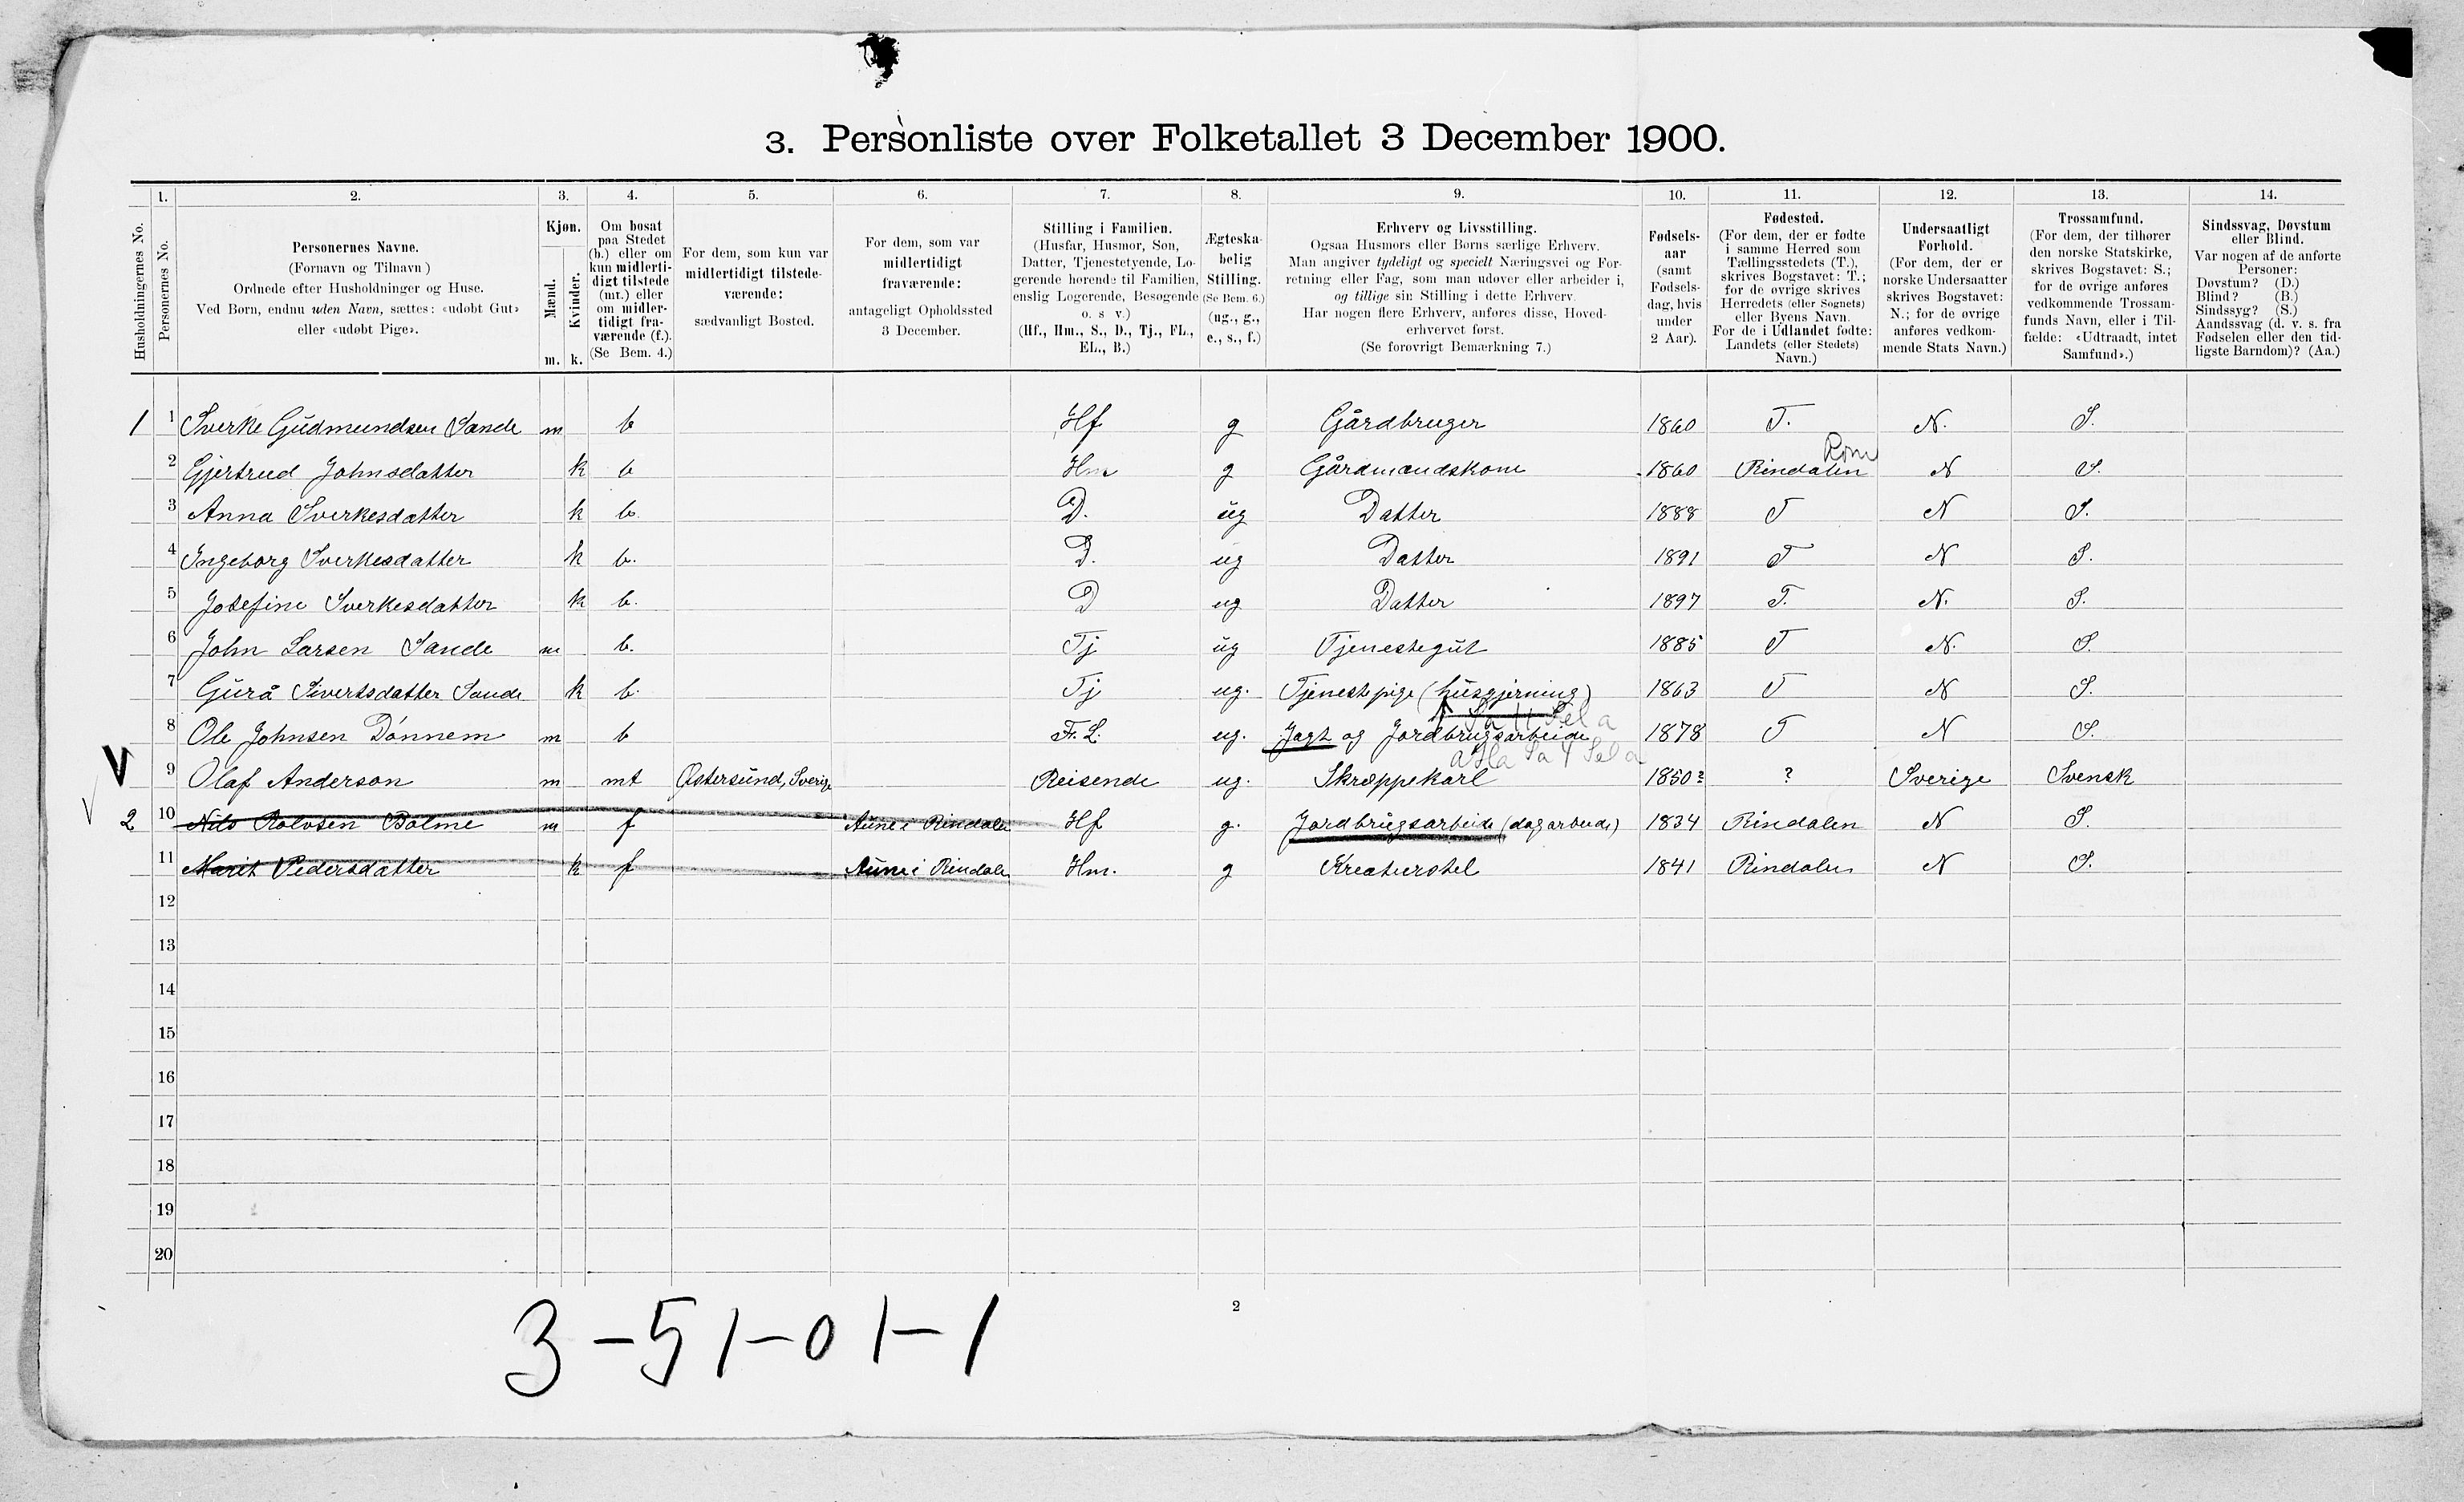 3. Personliste over Folketallet 3 December 1900.
1. 2. 3. 4. 5. 6. 7. 8. 9. 10. 11. 12. 13. 14.
Husholdningernes No.
Personernes No.
Personernes Navne.
(Fornavn og Tilnavn)
Ordnede efter Husholdninger og Huse.
Ved Børn, endnu uden Navn, sættes: «udøbt Gut»
eller «udøbt Pige».
Kjøn.
Mænd.
Kvinder.
m. k.
Om bosat
paa Stedet
(b.) eller om
kun midlerti-
digt tilstede
(mt.) eller
om midler-
tidigt fra-
værende (f.).
(Se Bem. 4.)
For dem, som kun var
midlertidigt tilstede-
værende:
sædvanligt Bosted.
For dem, som var
midlertidigt
fraværende:
antageligt Opholdssted
3 December.
Stilling i Familien.
(Husfar, Husmor, Søn,
Datter, Tjenestetyende, Lo-
gerende hørende til Familien,
enslig Logerende, Besøgende
o. s v.)
(Hf., Hm., S., D., Tj., FL.,
EL., B.)
Ægteska-
belig
Stilling.
(Se Bem. 6.)
(ug., g.,
e., s., f.)
Erhverv og Livsstilling.
Ogsaa Husmors eller Børns særlige Erhverv.
Man angiver tydeligt og specielt Næringsvei og For-
retning eller Fag, som man udøver eller arbeider i,
og tillige sin Stilling i dette Erhverv.
Har nogen flere Erhverv, anføres disse, Hoved-
erhvervet først.
(Se forøvrigt Bemærkning 7.)
Fødsels-
aar
(samt
Fødsels-
dag, hvis
under
2 Aar).
Fødested.
(For dem, der er fødte
i samme Herred som
Tællingsstedets (T.),
skrives Bogstavet: T.;
for de øvrige skrives
Herredets (eller Sognets)
eller Byens Navn.
For de i Udlandet fødte:
Landets (eller Stedets)
Navn.)
Undersaatligt
Forhold.
(For dem, der er
norske Undersaatter
skrives Bogstavet:
N.; for de øvrige
anføres vedkom-
mende Stats Navn.)
Trossamfund.
(For dem, der tilhører
den norske Statskirke,
skrives Bogstavet: S.;
for de øvrige anføres
vedkommende Trossam-
funds Navn, eller i Til-
fælde: «Udtraadt, intet
Samfund».)
Sindssvag, Døvstum
eller Blind.
Var nogen af de anførte
Personer:
Døvstum? (D.)
Blind? (B.)
Sindssyg? (S.)
Aandssvag (d. v. s. fra
Fødselen eller den tid-
ligste Barndom)? (Aa.)
1 1 Sverke Gudmundsen Sande m b Hf g Gårdbruger 1860 T. N. S.
Rom
2 Gjertrud Johnsdatter k b Hm g Gårdmandskone 1860 Rindalen N S.
3 Anna Sverkesdatter k b. D. ug Datter 1888 T N S.
4 Ingeborg Sverkesdatter k b. D. ug Datter 1891 T N S.
5 Josefine Sverkesdatter k b. D ug Datter 1897 T. N. S.
6 John Larsen Sande m b. Tj ug Tjenestegut 1885 T N. S.
7 Gurå Sivertsdatter Sande k b. Tj ug. Tjenestepige (husgjerning) 1863 T N S.
8 Ole Johnsen Dønnem m b F. L. ug. Jagt og Jordbrugsarbeide 1878 T N S.
V 9 Olaf Anderson m mt Østersund, Sverige Reisende ug. Skræppekarl 1850? ? Sverige Svensk
2 10 Nils Rolvsen Bolme m f Aune i Rindalen Hf g. Jordbrugsarbeide (dagarbeide) 1834 Rindalen N S.
11 Marit Pedersdatter k f Aune i Rindalen Hm. g Kreaturstel 1841 Rindalen N S.
12
13
14
15
16
17
18
19
20
2
3-51-01-1